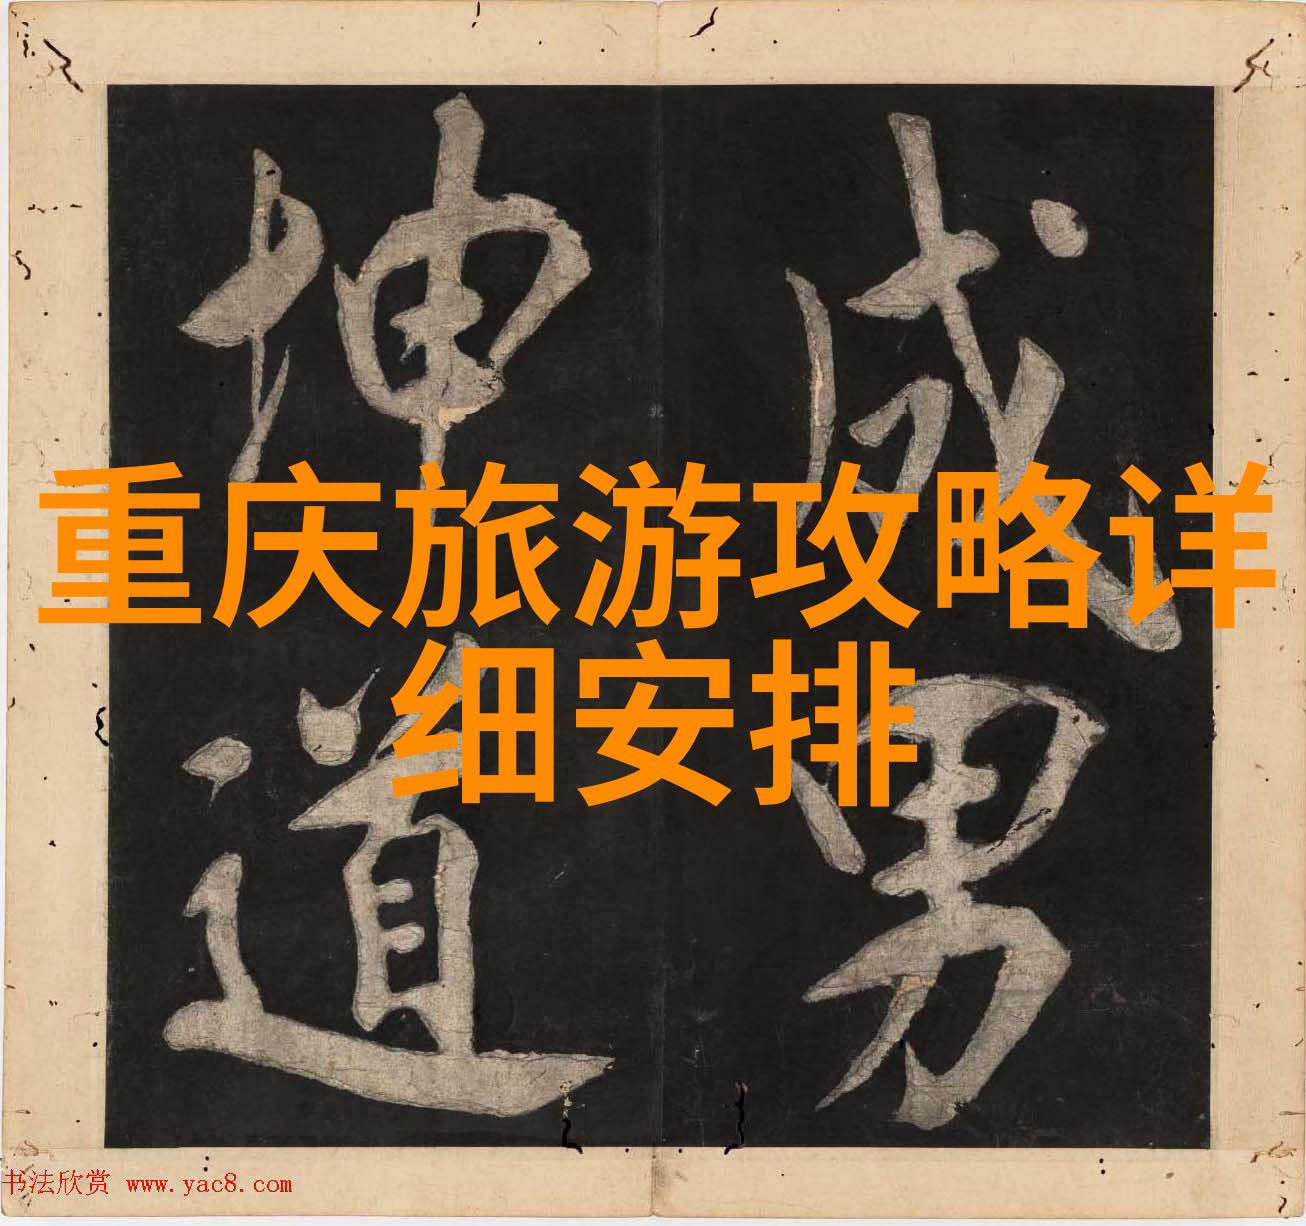 重庆旅游攻略详
细安排
成男
坤道
书法欣赏 www.yac8.com